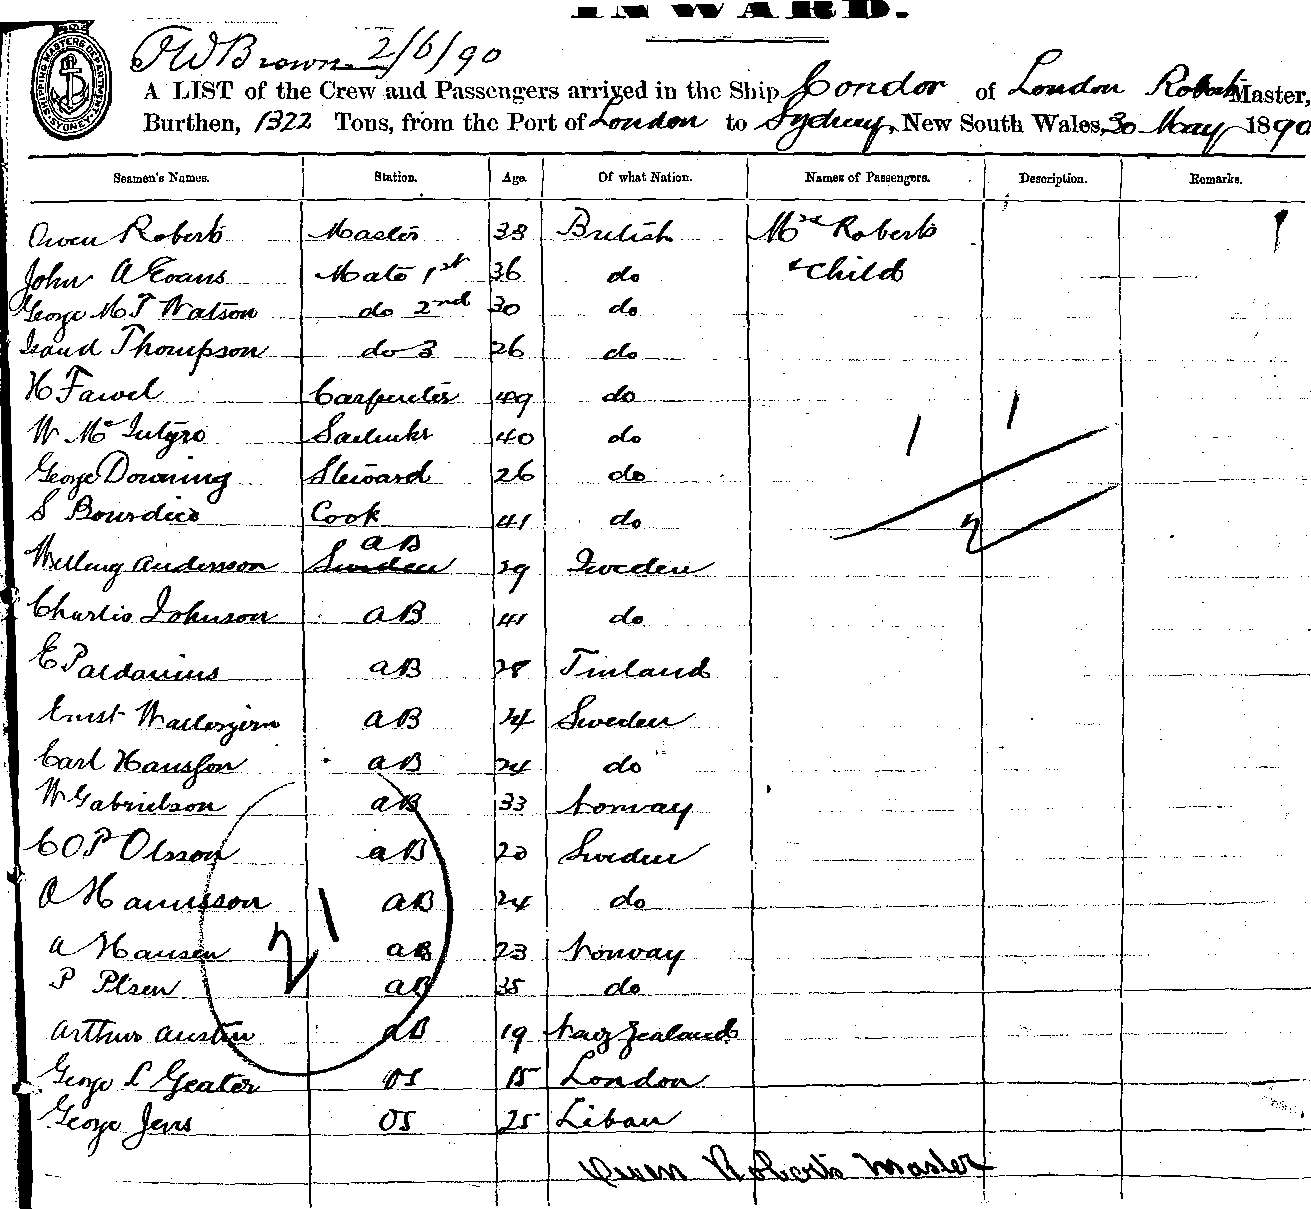 INWARD.
SHIPPING MASTERS DEPARTMENT SYDNEY
2/6/90
A LIST of the Crew and Passengers arrived in the Ship Condor of London Roberts Master,
Burthen, 1322 Tons, from the Port of London to Sydney, New South Wales, 30 May 1890
Seamen's Names. Station. Age. Of what Nation. Names of Passengers. Description. Remarks.
Owen Roberts Master 38 British Mrs Roberts 1
John A Evans Mate 1st 36 do & Child
George M T Watson do 2nd 30 do
Thompson do 3 26 do
H Fawel Carpenter 49 do
W Mc Intyre 40 do 1 1
George Downing Steward 26 do
S Cook 41 do 2
AB
Andersson Sweden 29 Sweden
Charles Johnson AB 41 do
E AB 28 Finland
Ernst AB 24 Sweden
Carl Hansson AB 24 do
W Gabrielson AB 33 Norway
C O P Olsson AB 20 Sweden
A AB 24 do
21
A Hansen AB 23 Norway
P AB 35 do
Arthur Austin AB 19 Zealand
George L Geater OS 15 London
George Jens OS 25 Libau
Owen Roberts Master